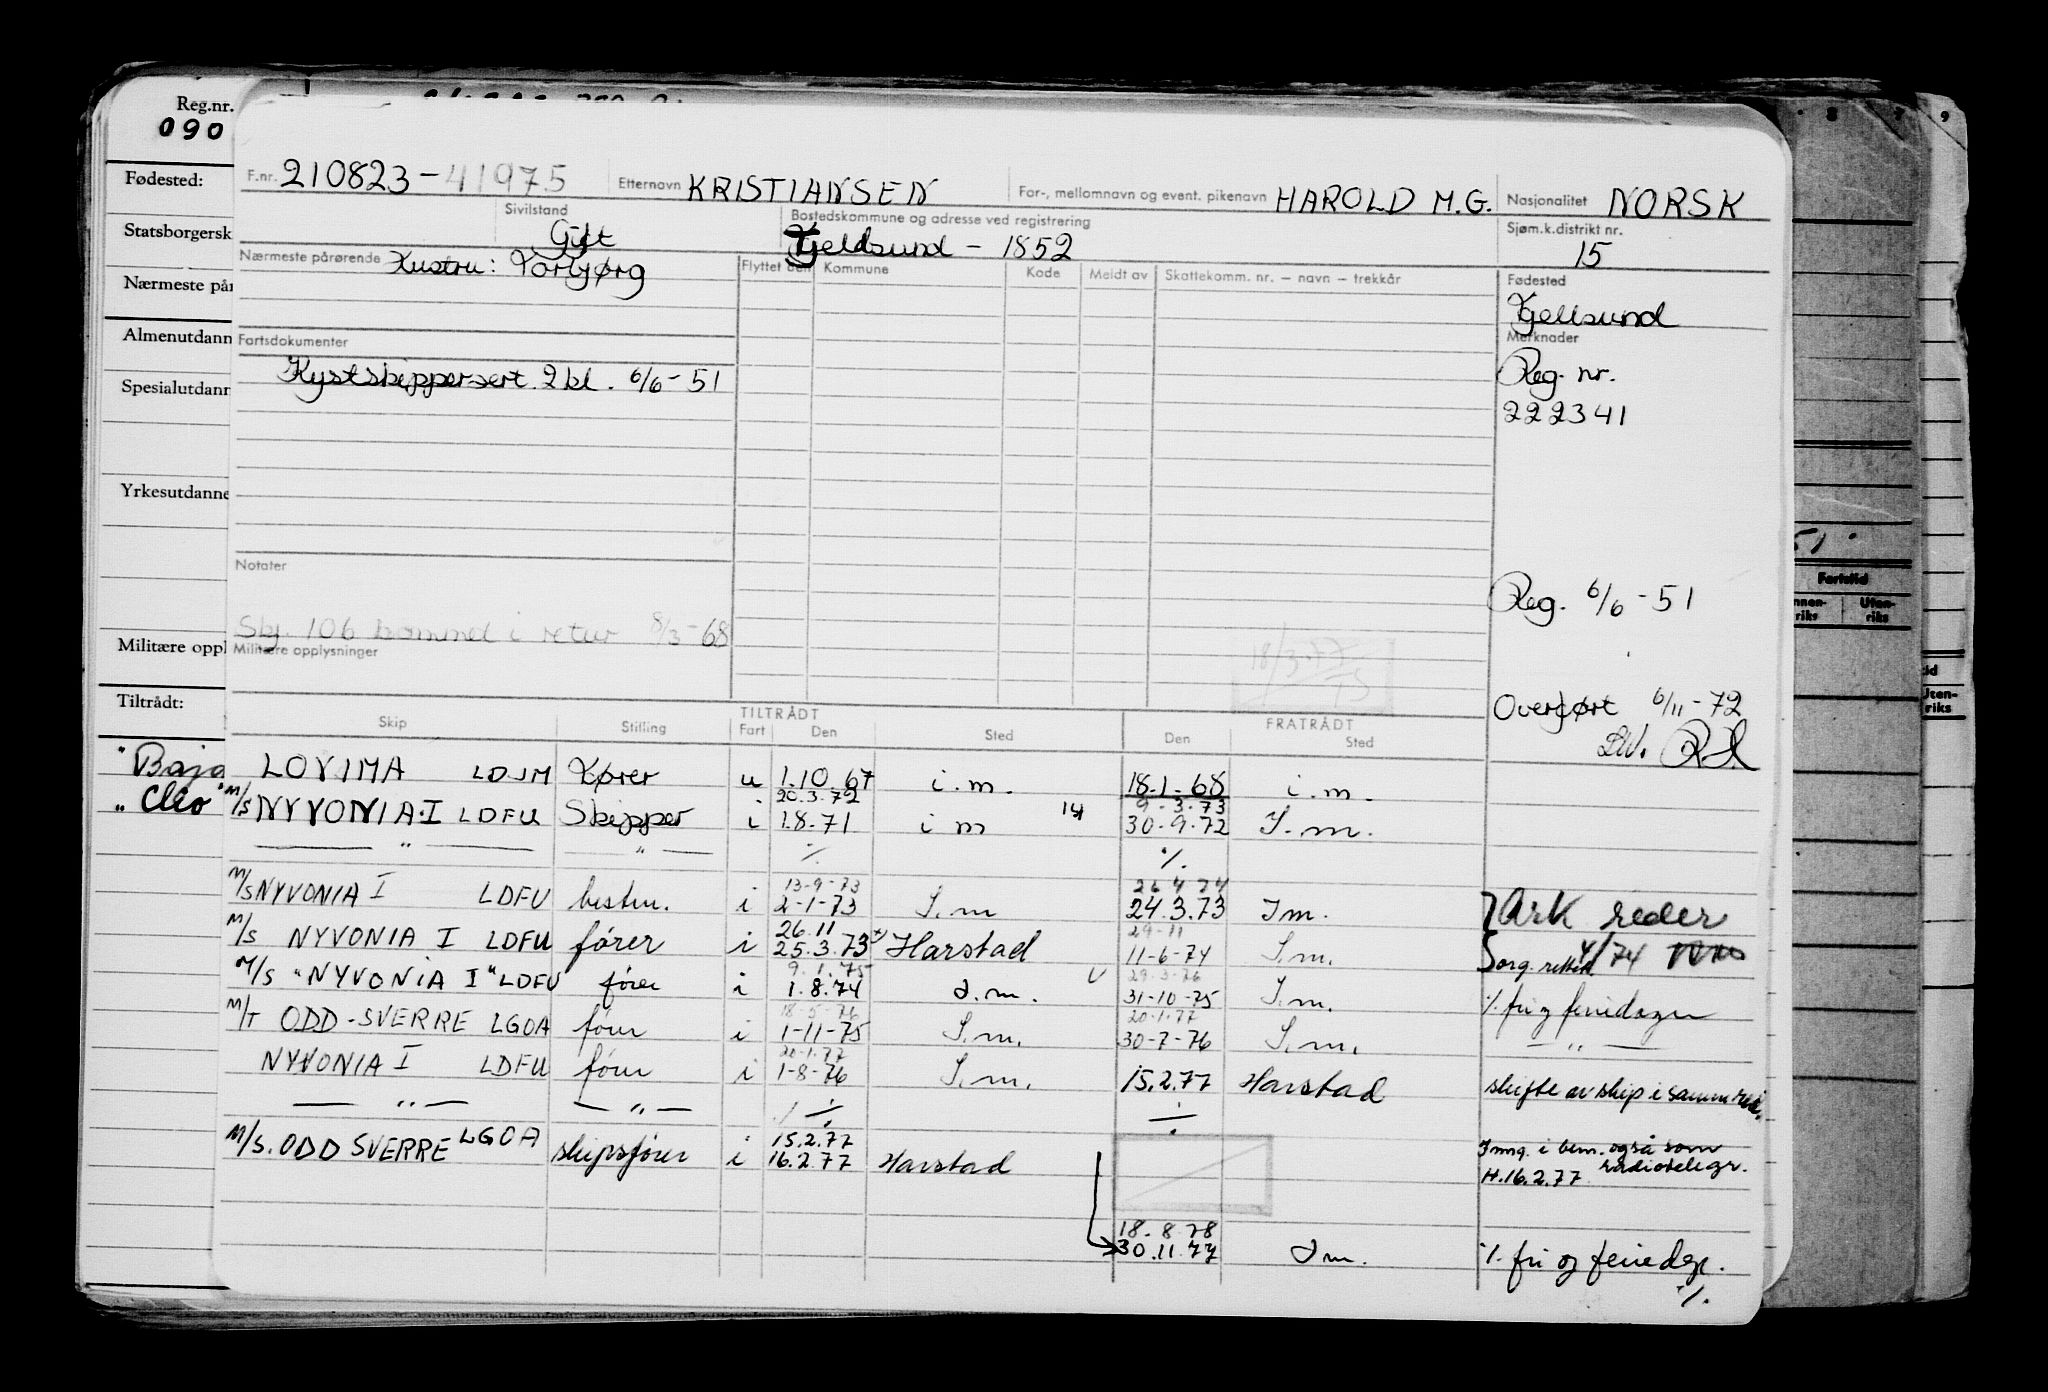 Reg.nr.
090
Fødested:
Statsborgersk
Nærmeste pår
Almenutdann
Spesialutdann
Yrkesutdanne
Militære oppl
Tiltrådt:
"Baja
„Cleo"
F.nr. 210823-41975 Etternavn KRISTIANSEN For-, mellomnavn og event. pikenavn HAROLD M.G. Nasjonalitet NORSK
Sivilstand Bostedskommune og adresse ved registrering Sjøm.k.distrikt nr.
Gift Tjeldsund - 1852 15
Nærmeste pårørende Hustru: Torbjørg Flyttet den Kommune Kode Meldt av Skattekomm. nr. – navn – trekkår Fødested
Tjellsund
Fartsdokumenter Merknader
Kystskippersert. 2 kl. 6/6-51 Reg. nr.
222341
Notater
Reg. 6/6-51
Skj. 106 kommet i retur 8/3-68
Militære opplysninger
18/3.77
75
Overført 6/11-72
Skip Stilling TILTRÅDT Fart Den Sted FRATRÅDT Den Sted
LOVIMA LDJM Fører u 1.10.67 i.m. 18.1.68 i.m.
20.3.72 9.3.73
M/S NYVONIA I LDFU Skipper i 1.8.71 i m 30.9.72 I.m.
— " — — " — ./. ./.
13-9-73 26 4 74
M/S NYVONIA I LDFU bestm. i 2-1-73 I.m 24.3.73 Im. Ark reder
26.11 29-11
M/S NYVONIA I LDFU fører i 25.3.73 Harstad 11-6-74 I.m. org. rettet 4/74
9.1.75 29-3-76
M/S "NYVONIA I" LDFU fører i 1.8.74 I.m. 31-10-75 I.m. ./. fri og feriedager
18-5-76 20-1-77
M/T ODD-SVERRE LGOA fører i 1-11-75 I.m. 30-7-76 I.m. — " —
20-1-77
NYVONIA I LDFU fører i 1-8-76 I.m. 15.2.77 Harstad skifte av skip i samme red.
— " — — " — ./. ./.
15.2.77
M/S. ODD SVERRE LGOA skipsfører i 16.2.77 Harstad
Inng. i bem. også som
radiotelegr.
H.16.2.77
18.8.78
30.11.77 Im. ./. fri og feriedgr.
./.
8 7 9
51
Fartstid
nnen-
riks
Uten-
riks
id
Uten-
riks